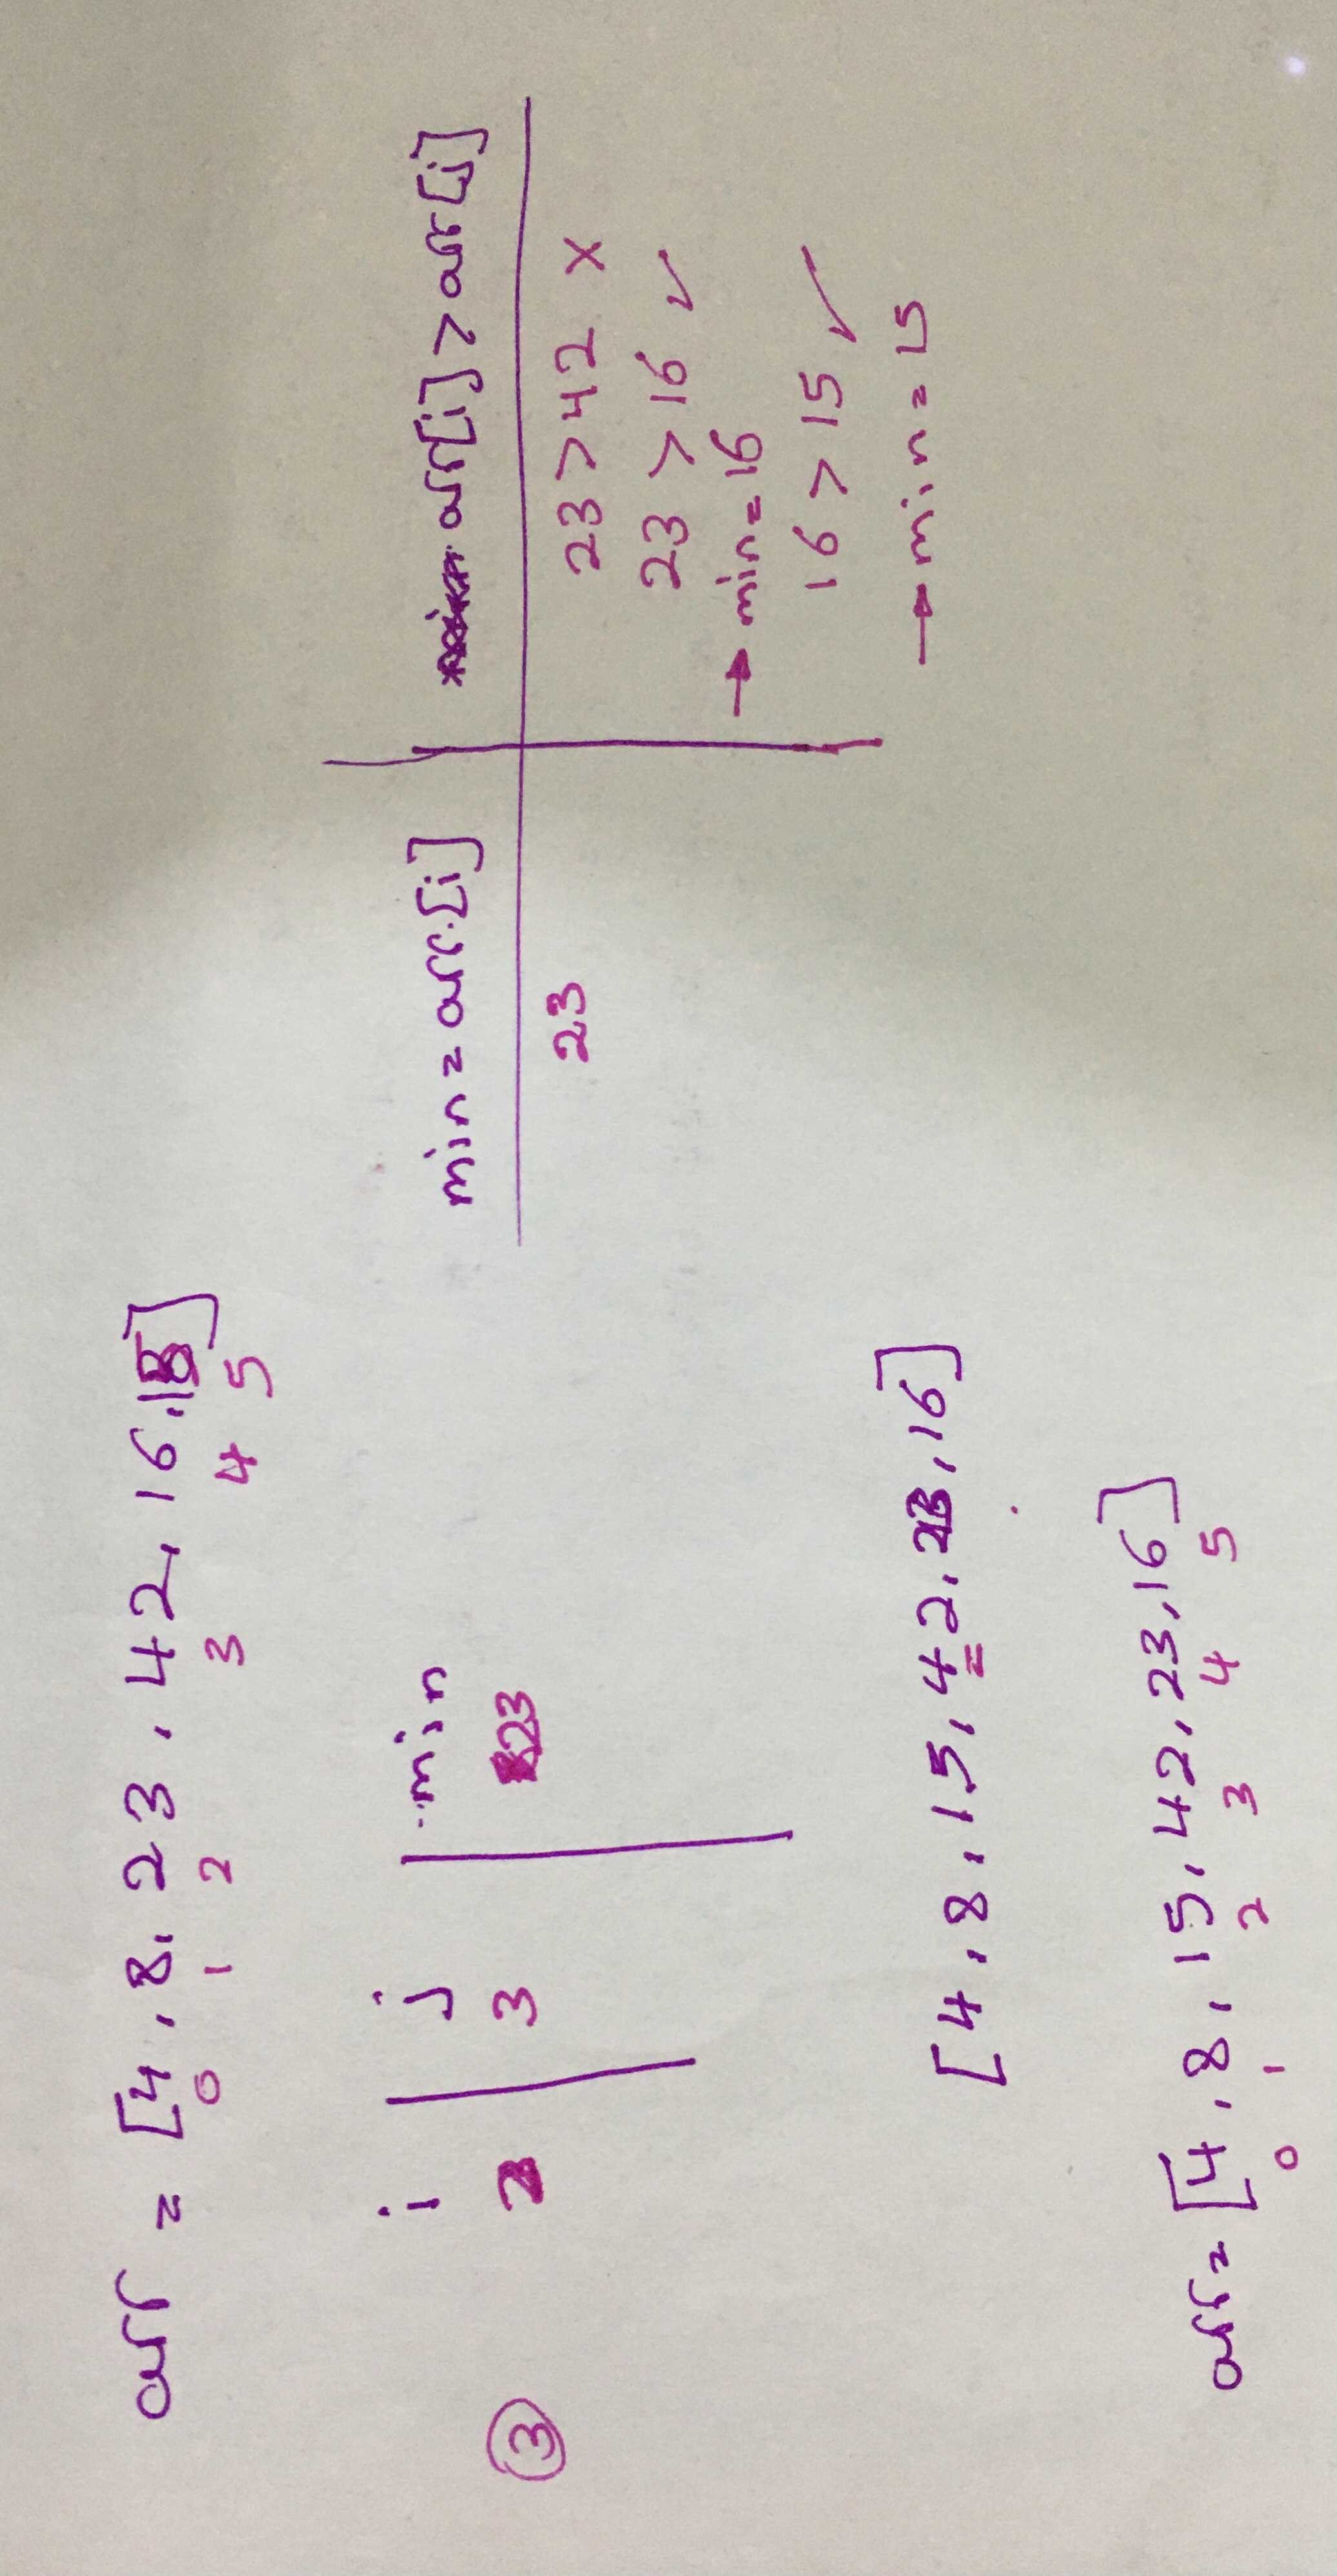 arr = [4, 8, 23, 42, 16, 15]
0 1 2 3 4 5
i j min min = arr[i] arr[i] > arr[j]
3 2 3 23 23 23 > 42 X
23 > 16 ✓
→ min = 16
16 > 15 ✓
→ min = 15
[4, 8, 15, 42, 23, 16]
arr = [4, 8, 15, 42, 23, 16]
0 1 2 3 4 5